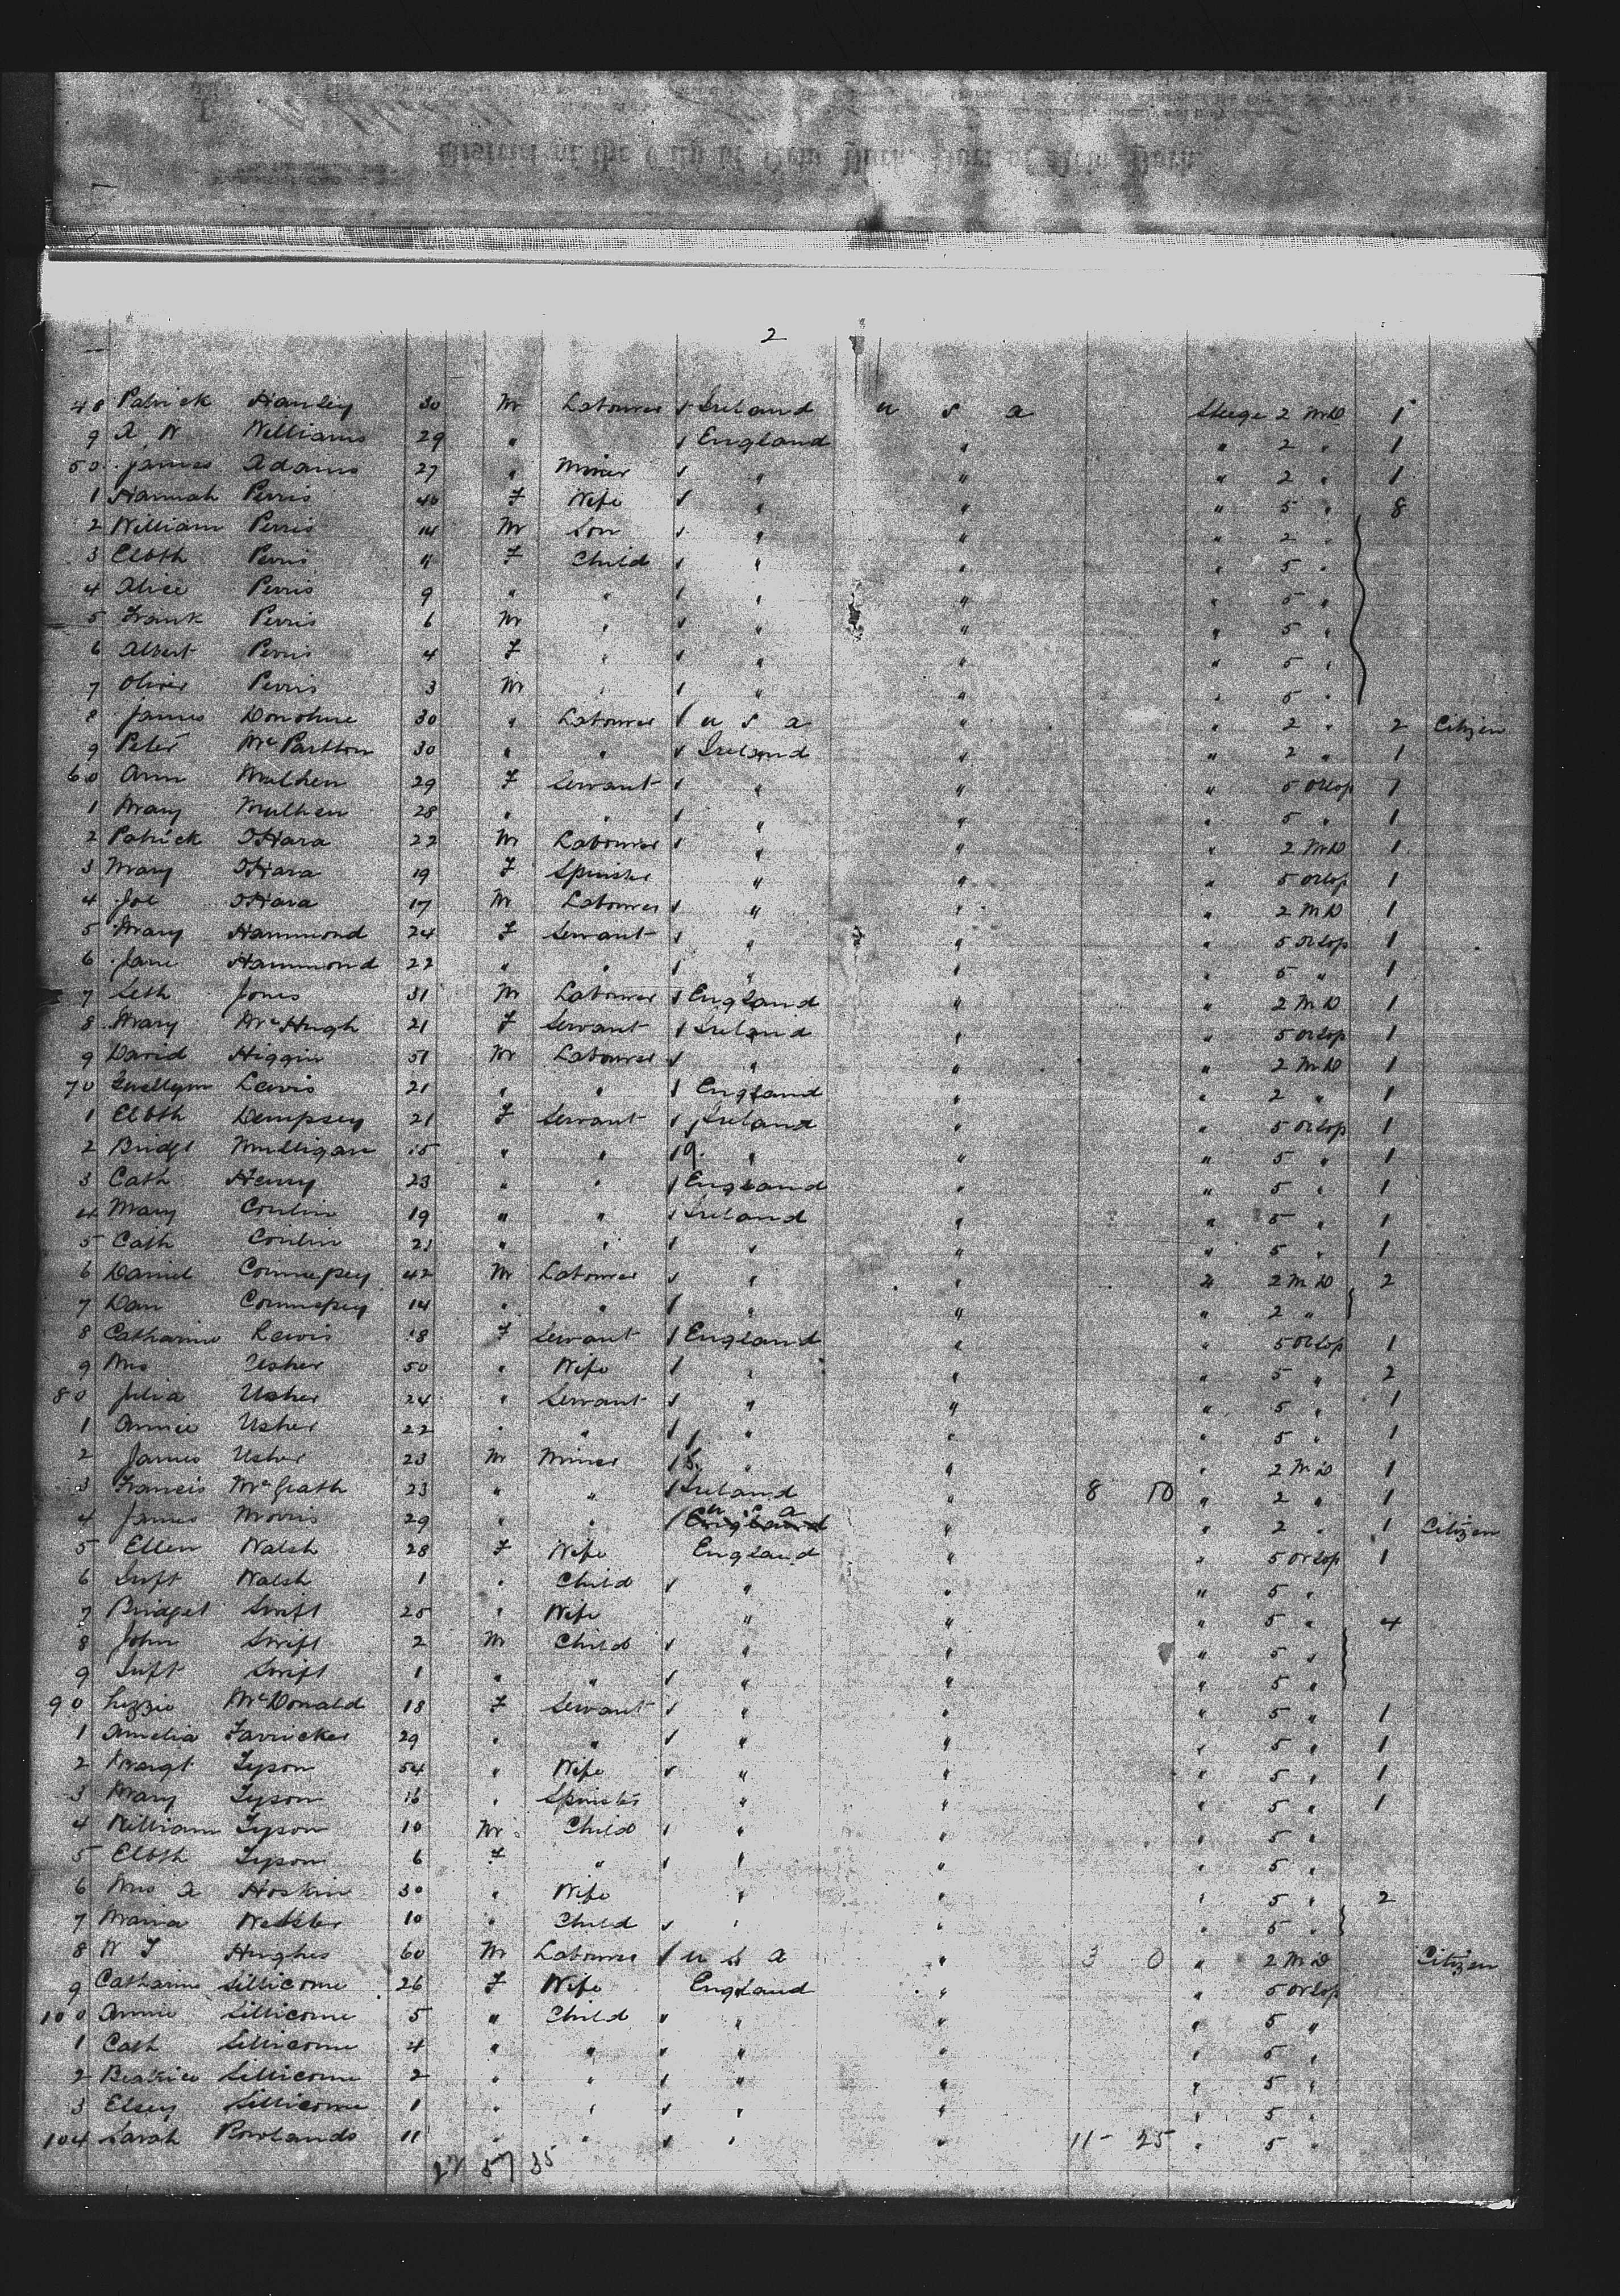 2
48 Patrick Hanley 30 M Labourer Ireland U S A Steege 2 M D 1
9 A W Williams 29 " England " " 2 " 1
50 James Adams 27 " Miner " " " 2 " 1
1 Hannah Perris 40 F Wife " " " 5 " 8
2 William Perris 14 M Son " " " 2 "
3 Elbth Perris 11 F Child " " " 5 "
4 Alice Perris 9 " " " " " 5 "
5 Frank Perris 6 M " " " " 5 "
6 Albert Perris 4 F " " " " 5 "
7 Oliver Perris 3 M " " " " 5 "
8 James Donohue 30 " Labourer U S A " " 2 " 2 Citizen
9 Peter McPartlon 30 " " Ireland " " 2 " 1
60 Ann Mulhen 29 F Servant " " " 5 Orlop 1
1 Mary Mulhen 28 " " " " " 5 " 1
2 Patrick O'Hara 22 M Labourer " " " 2 M D 1
3 Mary O'Hara 19 F Spinster " " " 5 Orlop 1
4 Joe O'Hara 17 M Labourer " " " 2 M D 1
5 Mary Hammond 24 F Servant " " " 5 Orlop 1
6 Jane Hammond 22 " " " " " 5 " 1
7 Seth Jones 31 M Labourer England " " 2 M D 1
8 Mary McHugh 21 F Servant Ireland " " 5 Orlop 1
9 David Higgin 51 M Labourer " " " 2 M D 1
70 Lewis 21 " " England " " 2 " 1
1 Elbth Dempsey 21 F Servant Ireland " " 5 Orlop 1
2 Bridgt Mulligan 15 " " " " " 5 " 1
3 Cath Henry 23 " " England " " 5 " 1
4 Mary Conlin 19 " " Ireland " " 5 " 1
5 Cath Conlin 21 " " " " " 5 " 1
6 Daniel 42 M Labourer " " " 2 M D 2
7 Dan 14 " " " " " 2 "
8 Catharine Lewis 18 F Servant England " " 5 Orlop 1
9 Mrs Usher 50 " Wife " " " 5 " 2
80 Julia Usher 24 " Servant " " " 5 " 1
1 Annie Usher 22 " " " " " 5 " 1
2 James Usher 23 M Miner " " " 2 M D 1
3 Francis McGrath 23 " " Ireland " 8 10 " 2 " 1
4 James Morris 29 " " England U S A " " 2 " 1 Citizen
5 Ellen Walsh 28 F Wife England " " 5 Orlop 1
6 Inft Walsh 1 " Child " " " 5 "
7 Bridget Swift 25 " Wife " " " 5 " 4
8 John Swift 2 M Child " " " 5 "
9 Inft Swift 1 " " " " " 5 "
90 Lizzie McDonald 18 F Servant " " " 5 " 1
1 Amelia 29 " " " " " 5 " 1
2 Margt Tyson 54 " Wife " " " 5 " 1
3 Mary Tyson 16 " Spinster " " " 5 " 1
4 William Tyson 10 M Child " " " 5 "
5 Elbth Tyson 6 F " " " " 5 "
6 Mrs A Hoskin 30 " Wife " " " 5 " 2
7 Maria Webster 10 " Child " " " 5 "
8 W J Hughes 60 M Labourer U S A " 3 0 " 2 M D Citizen
9 Catharine Sillicome 26 F Wife England " " 5 Orlop
100 Annie Sillicome 5 " Child " " " 5 "
1 Cath Sillicome 4 " " " " " 5 "
2 Beatrice Sillicome 2 " " " " " 5 "
3 Elsey Sillicome 1 " " " " " 5 "
104 Sarah Rowlands 11 " " " " 11 - 25 " 5 "
57 35